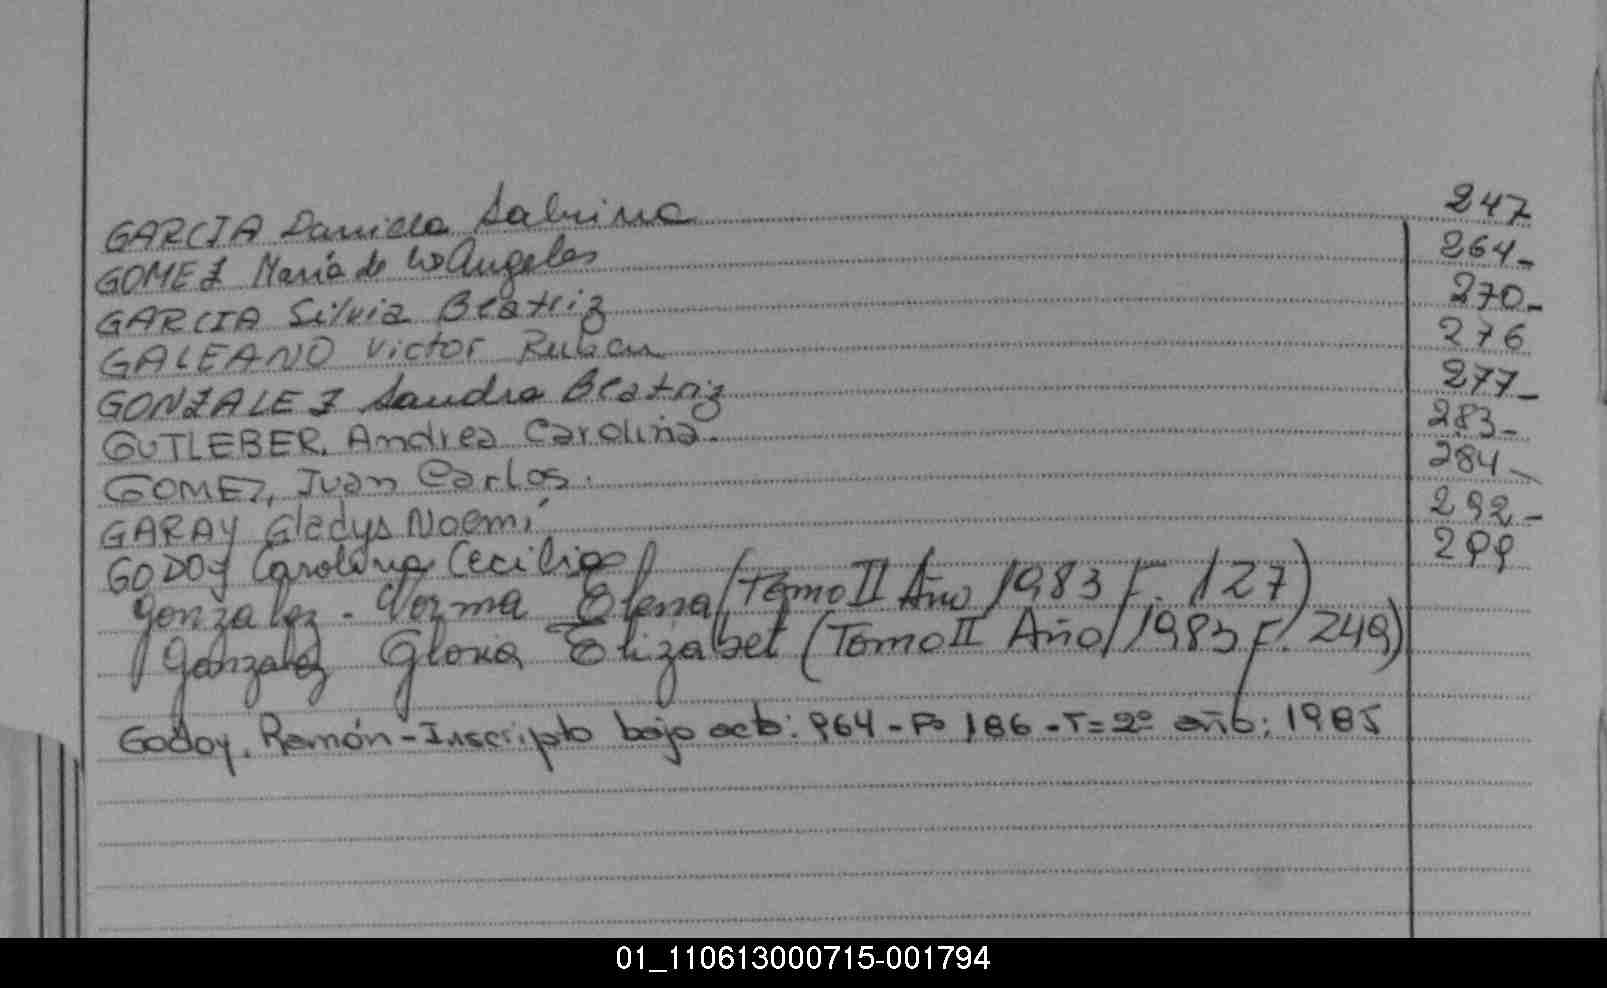 GARCIA Daniela Sabrina 247
GOMEZ María de los Angeles 264-
GARCIA Silvia Beatriz 270-
GALEANO Victor Ruben 276
GONZALEZ Sandra Beatriz 277-
GUTLEBER, Andrea Carolina. 283-
GOMEZ, Juan Carlos. 284-
GARAY Gladys Noemí 292-
GODOY Carolina Cecilia 299
Gonzalez - Norma Elena (Tomo II Año 1983 F. 127)
Gonzalez Gloria Elizabet (Tomo II Año 1983 F. 249)
Godoy, Ramón - Inscripto bajo acta: 964 - Fº 186 - T = 2º año: 1985
01_110613000715-001794